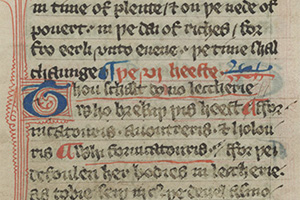 in time of plente ⁊ on þe nede of
pouert . in þe dai of riches / for
fro eerli vnto euene . þe time schal
chaunge ¶ þe vi heeste
Thou schalt do no leccherie
Who brekiþ þis heest ¶ for
nicatouris . auouteris . ⁊ holou
ris ¶ Whi fornicatouris . ffor þei
defoulen her bodies in leccherie .
as to die